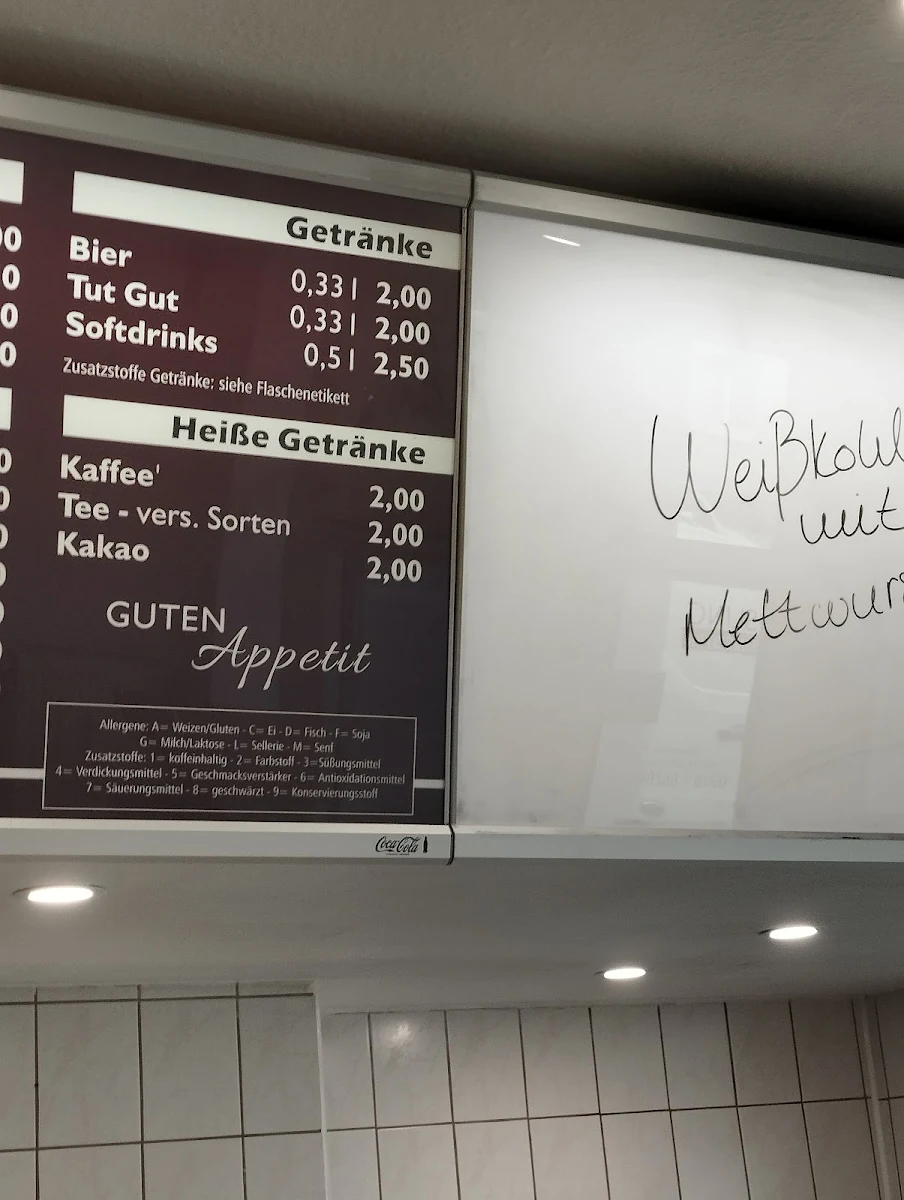 Getränke
Bier 0,33 l 2,00
Tut Gut 0,33 l 2,00
Softdrinks 0,5 l 2,50
Zusatzstoffe Getränke: siehe Flaschenetikett
Heiße Getränke
Kaffee' 2,00
Tee - vers. Sorten 2,00
Kakao 2,00
GUTEN
Appetit
Allergene: A= Weizen/Gluten - C= Ei - D= Fisch - F= Soja
G= Milch/Laktose - L= Sellerie - M= Senf
Zusatzstoffe: 1= koffeinhaltig - 2= Farbstoff - 3=Süßungsmittel
4= Verdickungsmittel - 5= Geschmacksverstärker - 6= Antioxidationsmittel
7= Säuerungsmittel - 8= geschwärzt - 9= Konservierungsstoff
Coca-Cola
Weißkohl
mit
Mettwurs